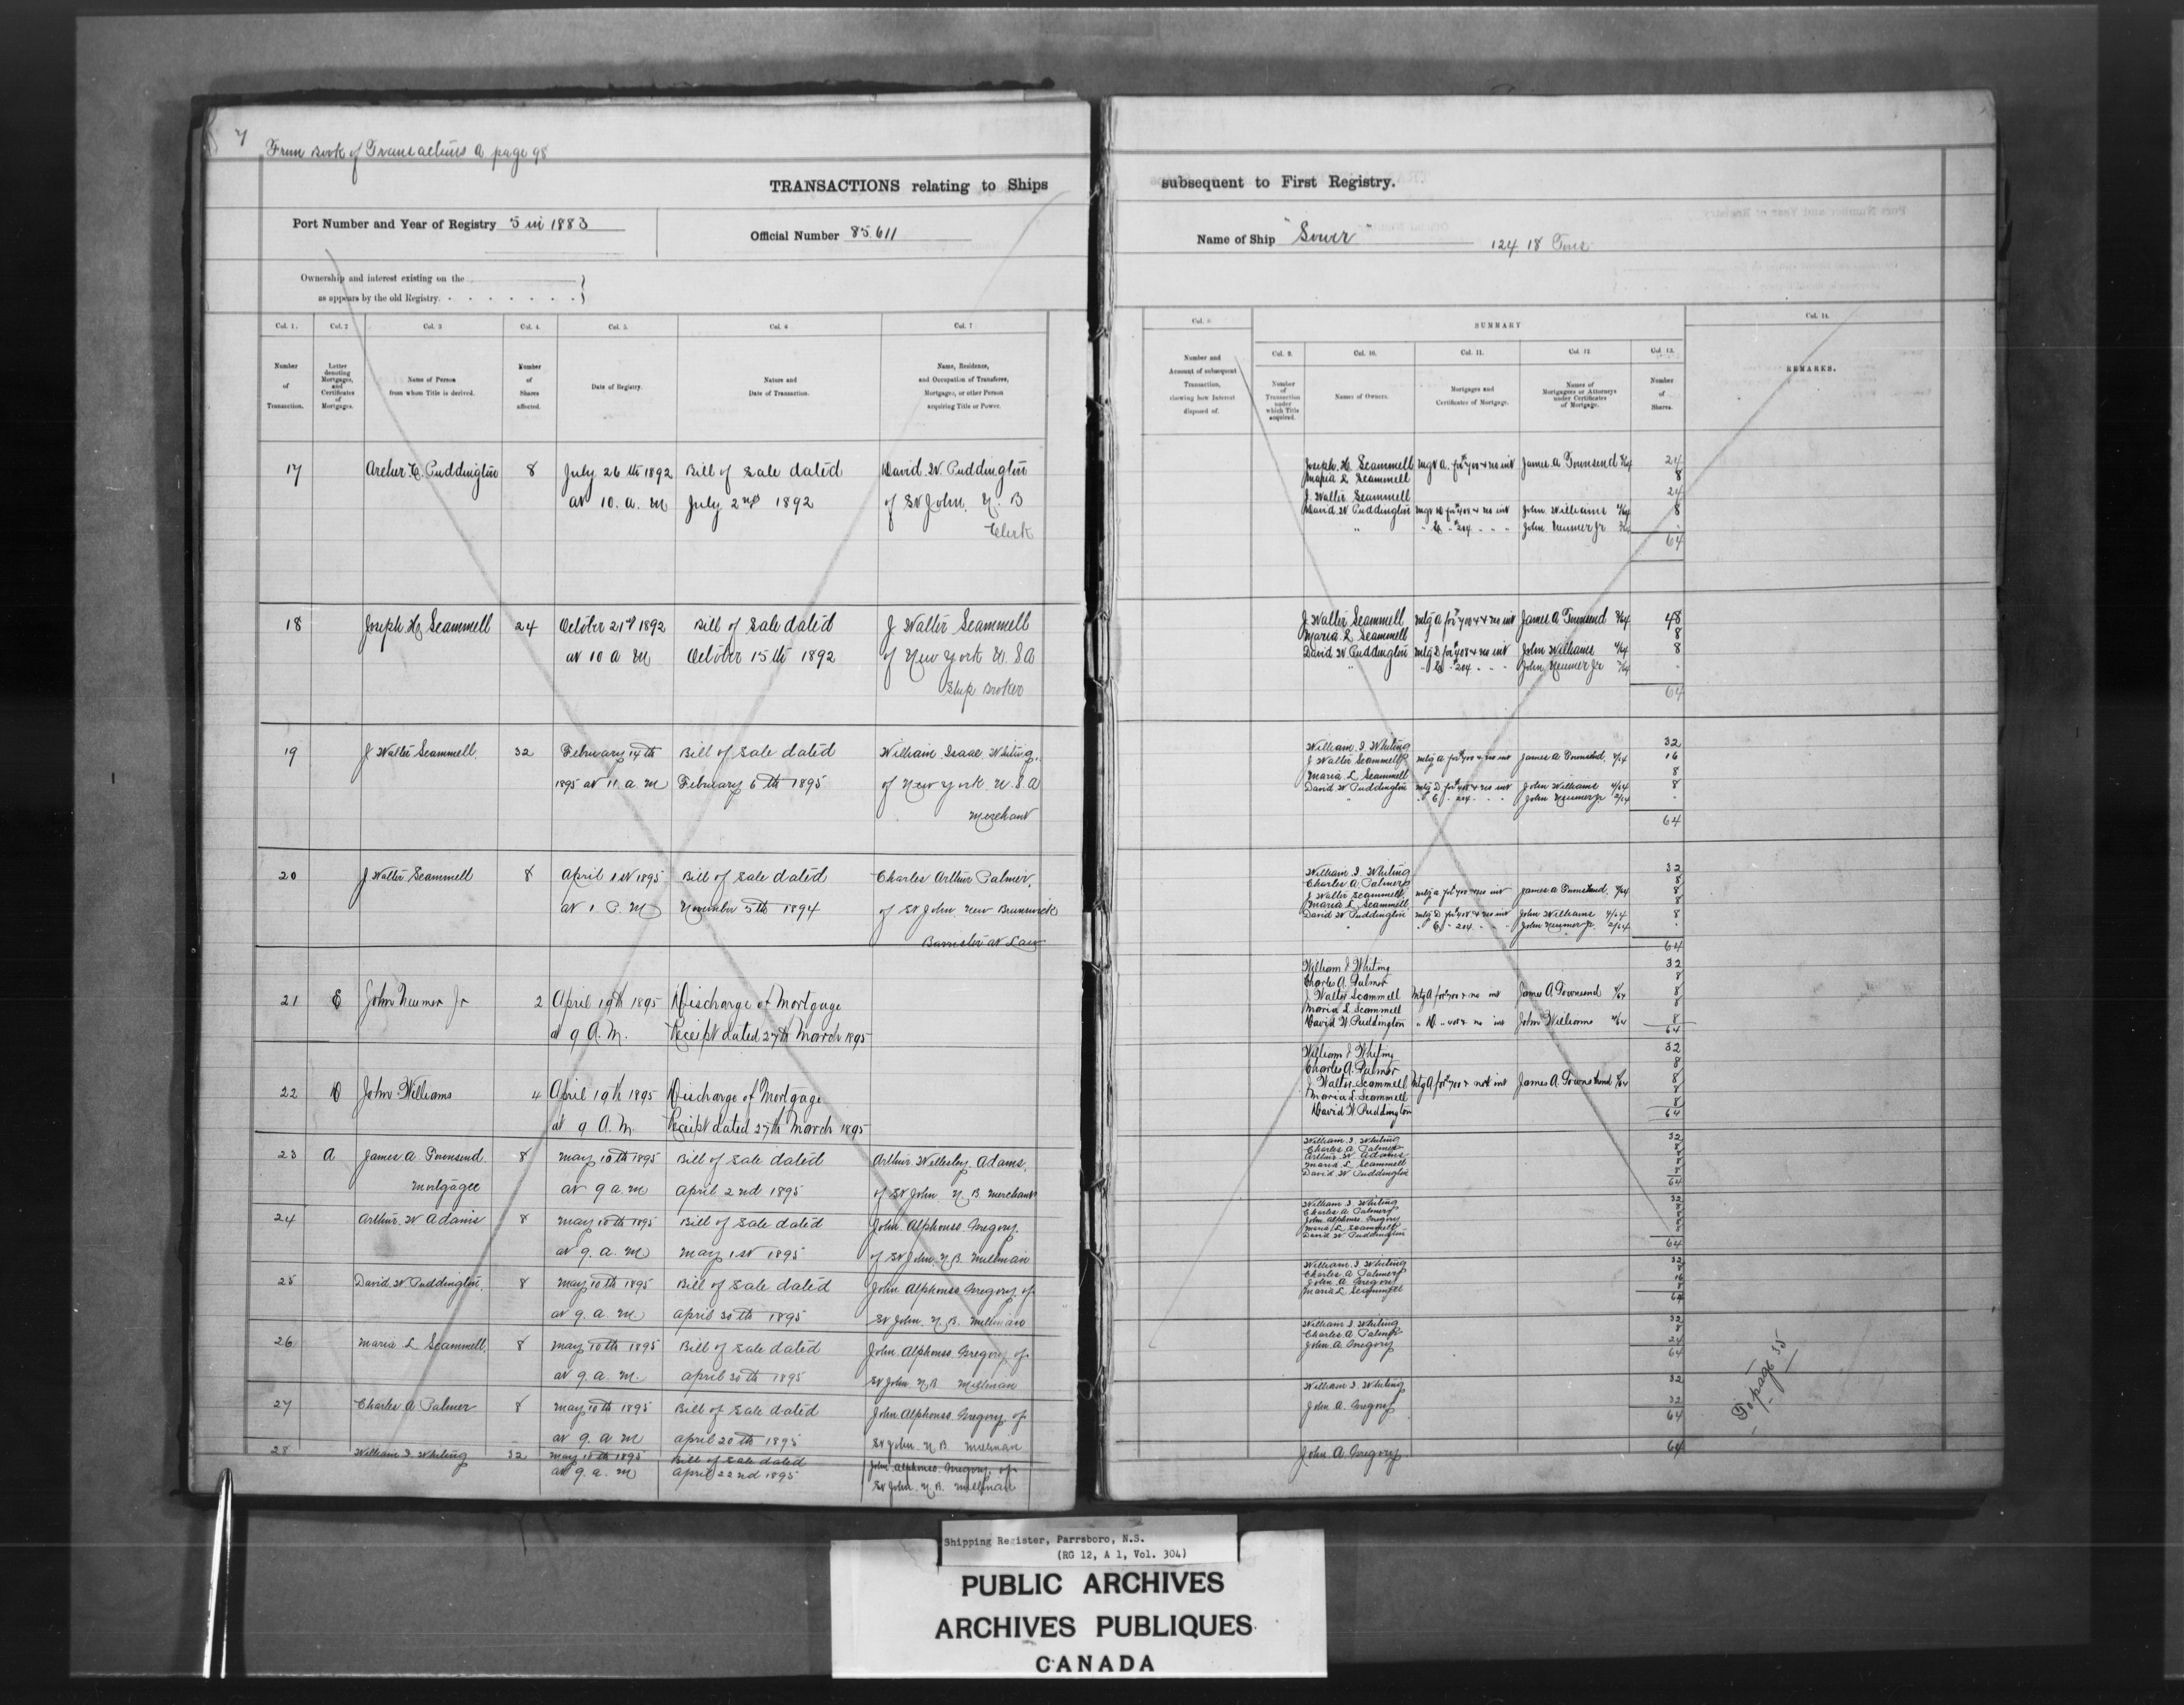 7
From Book of Transactions A page 98
TRANSACTIONS relating to Ships
Port Number and Year of Registry 5 in 1883
Official Number 85.611
Ownership and interest existing on the
as appears by the old Registry.
Col. 1. Col. 2 Col. 3 Col. 4. Col. 5. Col. 6 Col. 7
Number of Transaction.
Letter denoting Mortgages, and Certificates of Mortgages.
Name of Person from whom Title is derived.
Number of Shares affected.
Date of Registry.
Nature and Date of Transaction.
Name, Residence, and Occupation of Transferee, Mortgagee, or other Person acquiring Title or Power.
17 Archer C. Puddington 8 July 26th 1892 Bill of Sale dated David W. Puddington
at 10. a. m July 2nd 1892 of St John. N. B
Clerk
18 Joseph H. Scammell 24 October 21st 1892 Bill of Sale dated J Walter Scammell
at 10 a m October 15th 1892 of New York U.S.A
Ship Broker
19 J Walter Scammell 32 February 14th Bill of Sale dated William Isaac Whiting,
1895 at 11. a. m February 6th 1895 of New York U.S.A
Merchant
20 J Walter Scammell 8 April 1st 1895 Bill of Sale dated Charles Arthur Palmer,
at 1 P. M November 5th 1894 of St John New Brunswick
Barrister at Law
21 E John Neumer Jr 2 April 19th 1895 Discharge of Mortgage
at 9 A.M. Receipt dated 27th March 1895
22 D John Williams 4 April 19th 1895 Discharge of Mortgage
at 9 A.M. Receipt dated 27th March 1895
23 A James A Townsend 8 May 10th 1895 Bill of Sale dated Arthur Wellesley Adams,
Mortgagee at 9 a.m April 2nd 1895 of St John. N. B. Merchant
24 Arthur W Adams 8 May 10th 1895 Bill of Sale dated John Alphonso Gregory
at 9. a. m May 1st 1895 of St John. N.B. Millman
25 David W Puddington 8 May 10th 1895 Bill of Sale dated John Alphonso Gregory of
at 9. a. m April 30th 1895 St John. N. B. Millman
26 Maria L Scammell 8 May 10th 1895 Bill of Sale dated John Alphonso Gregory of
at 9. a. m April 30th 1895 St John. N B Millman
27 Charles A Palmer 8 May 10th 1895 Bill of Sale dated John Alphonso Gregory of
at 9. a m April 20th 1895 St John. N B Millman
28 William I Whiting 32 May 10th 1895 Bill of Sale dated John Alphonso Gregory of
at 9. a. m April 22nd 1895 St John. N.B. Millman
subsequent to First Registry.
Name of Ship "Sower" 124.18 Tons
SUMMARY
Col. 9. Col. 10. Col. 11. Col. 12 Col. 13. Col. 14.
Number and Account of subsequent Transaction, showing how Interest disposed of.
Number of Transaction under which Title acquired.
Names of Owners.
Mortgages and Certificates of Mortgage.
Names of Mortgagees or Attorneys under Certificates of Mortgage.
Number of Shares.
REMARKS.
Joseph. H. Scammell James A Townsend 24
Maria L Scammell 8
J. Walter Scammell 24
David W Puddington John Williams 4/64 8
" John Neumer Jr 2/64
64
J Walter Scammell James A Townsend 48
Maria L Scammell 8
David W Puddington John Williams 4/64 8
John Neumer Jr 2/64
64
William I Whiting 32
J Walter Scammell James A Townsend 16
Maria L Scammell 8
David W Puddington John Williams 4/64 8
John Neumer Jr 2/64
64
William I Whiting 32
Charles A Palmer 8
J Walter Scammell James A Townsend 8
Maria L Scammell 8
David W Puddington John Williams 4/64 8
John Neumer Jr. 2/64
64
William I Whiting 32
Charles A. Palmer 8
J Walter Scammell James A Townsend 8
Maria L Scammell 8
David W Puddington John Williams 4/64 8
64
William I Whiting 32
Charles A. Palmer 8
J Walter Scammell James A. Townsend 8
Maria L Scammell 8
David W Puddington 8
64
William I Whiting 32
Charles A Palmer 8
Arthur W Adams 8
Maria L Scammell 8
David W Puddington 8
64
William I Whiting 32
Charles A Palmer 8
John Alphonso Gregory 8
Maria L Scammell 8
David W Puddington 8
64
William I Whiting 32
Charles A Palmer 8
John A Gregory 16
Maria L Scammell 8
64
William I Whiting 32
Charles A Palmer 8
John A Gregory 24
64
William I Whiting 32
John A. Gregory 32
64
John A Gregory 64
To page 35
Shipping Register, Parrsboro, N.S.
(RG 12, A 1, Vol. 304)
PUBLIC ARCHIVES
ARCHIVES PUBLIQUES
CANADA